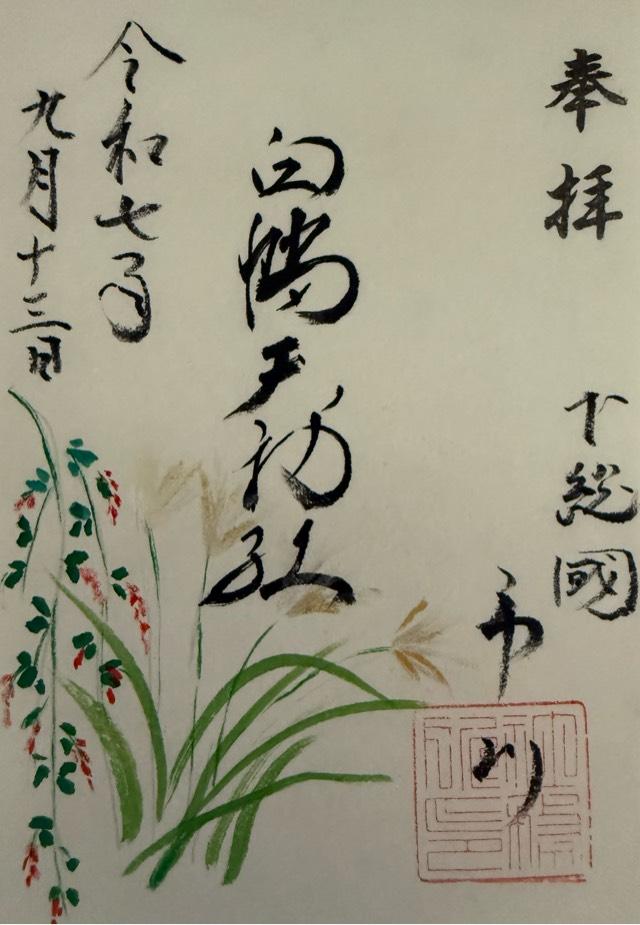 奉拝
下総國
市川
白幡天神社
令和七年
九月十三日